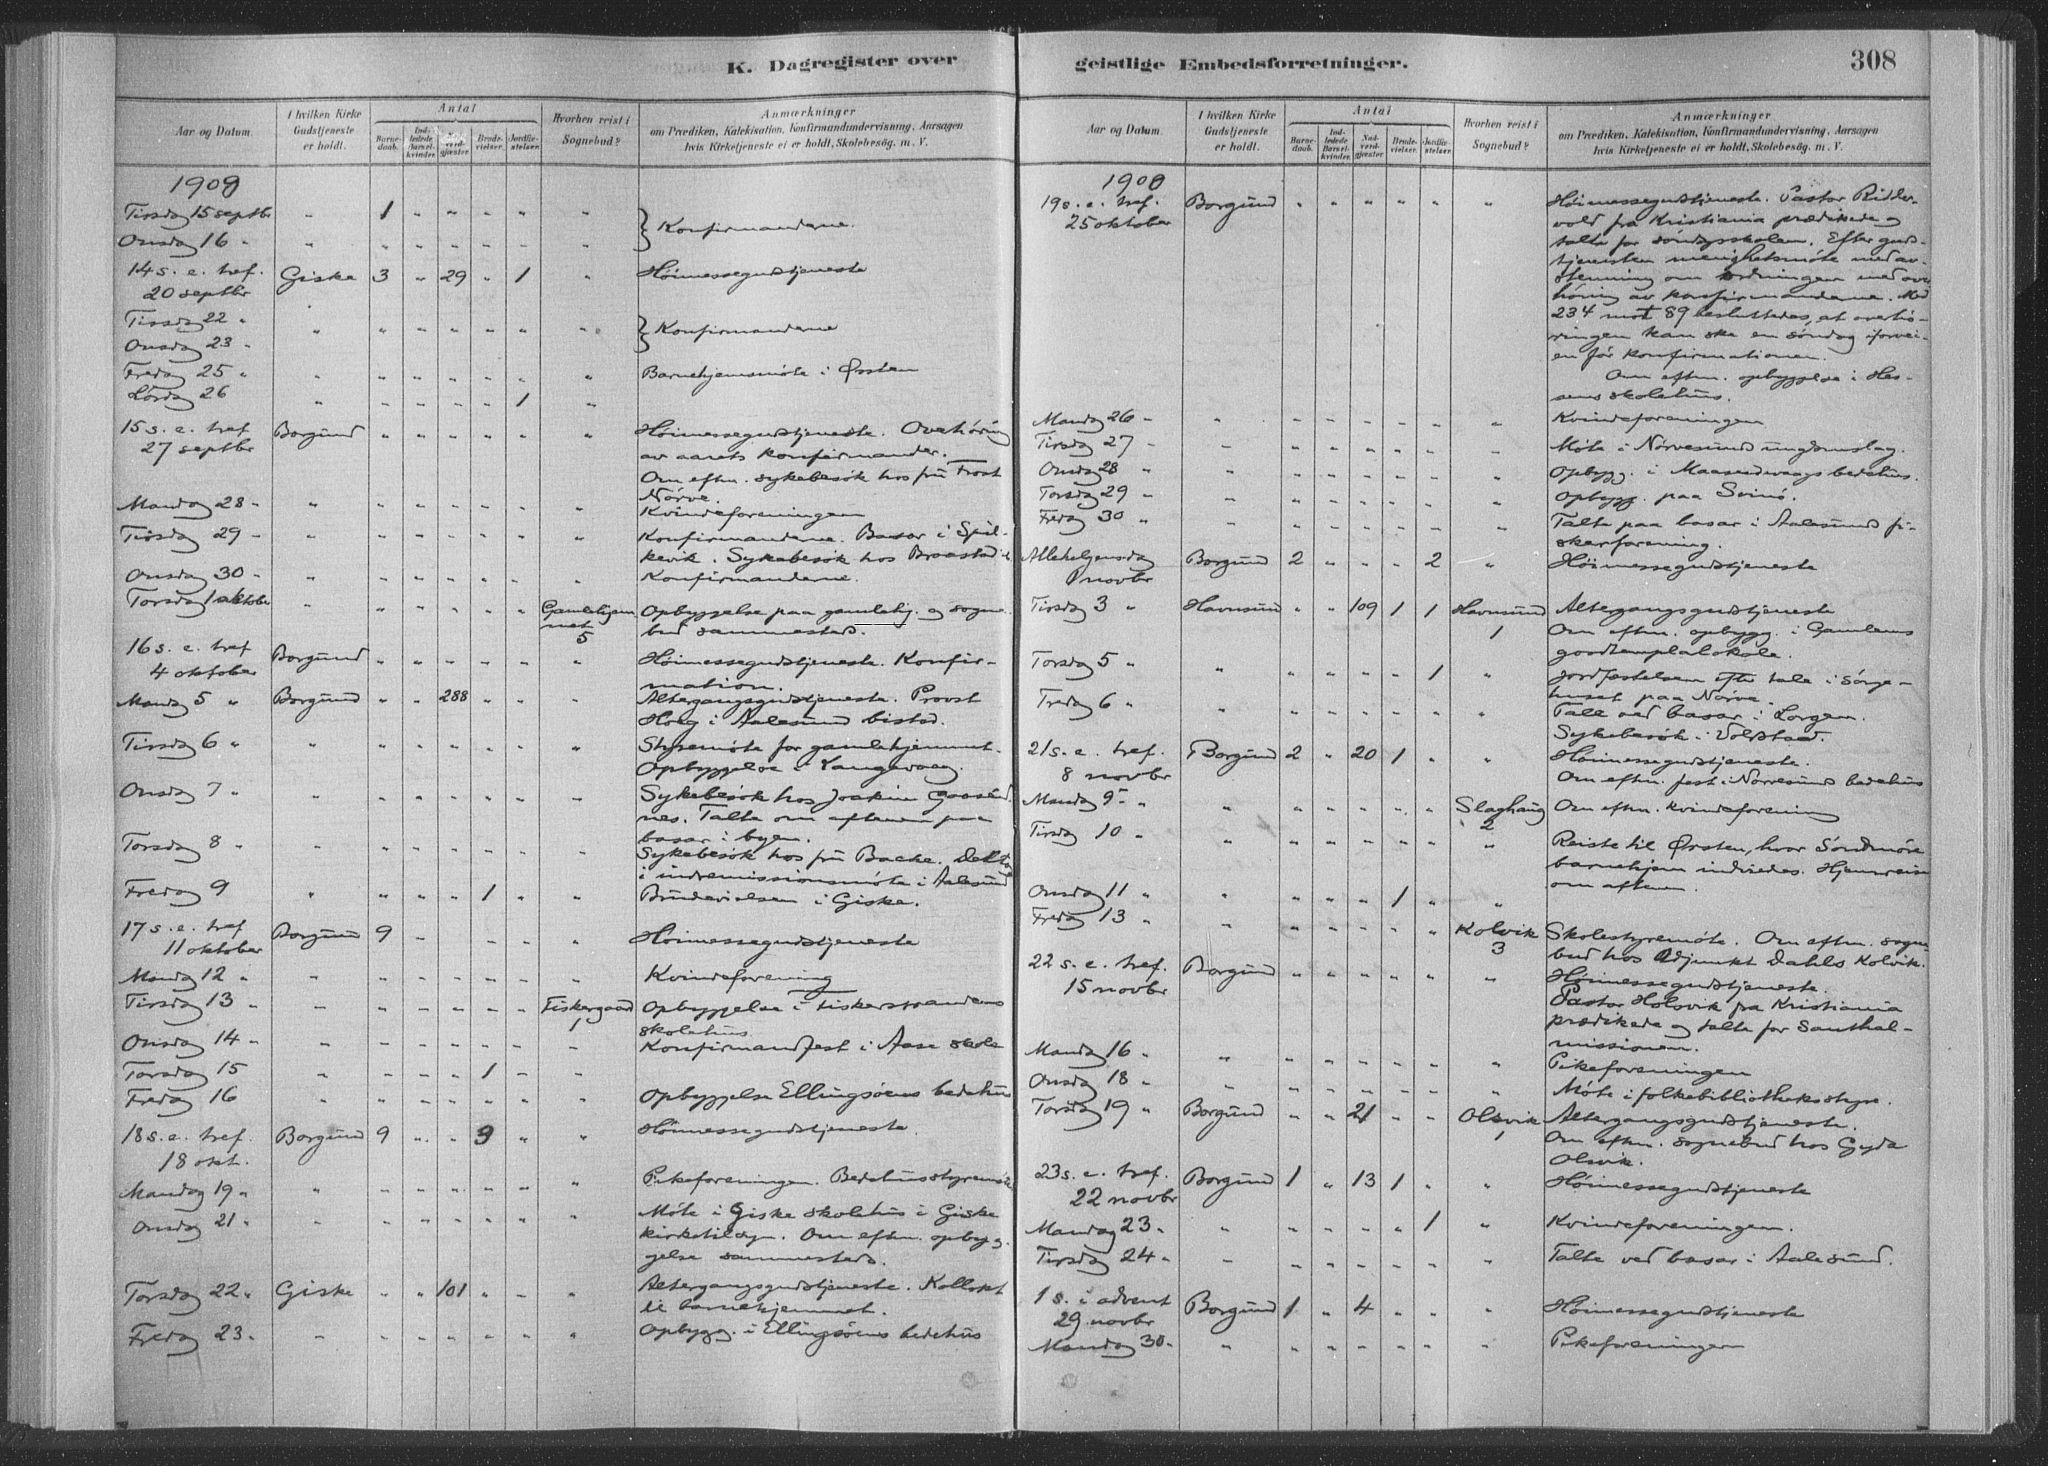 K. Dagregister over
Aar og Datum.
I hvilken Kirke Gudstjeneste er holdt.
Antal
Barne-daab.
Ind-ledede Barsel-kvinder.
Nad-verd-gjæster
Brude-vielser.
Jordfæ-stelser.
Hvorhen reist i Sognebud?
Anmærkninger
om Prædiken, Katekisation, Konfirmandundervisning, Aarsagen
hvis Kirketjeneste ei er holdt, Skolebesøg. m. V.
1908
Tirsdag 15 septbr " 1 " " " " " } Konfirmandene.
Onsdag 16 " " " " " " " "
14 s. e. tref. Giske 3 " 29 " 1 " Høimessegudstjeneste
20 septbr
Tirsdag 22 " " " " " " " " } Konfirmandene
Onsdag 23 "
Fredag 25 " " " " " " " " Barnehjemsmøte i Ørsten
Lørdag 26 " " " " " 1 "
15 s. e. tref Borgund " " " " " " Høimessegudstjeneste. Overhøring
27 septbr av aarets konfirmander.
Om eftm. sykebesøk hos fru Frost
Nørve.
Mandag 28 " " " " " " " " Kvindeforeningen
Tirsdag 29 " " " " " " " " Konfirmandene. Basar i Spjel-
kevik. Sykebesøk hos Braastad
Onsdag 30 " " " " " " " Konfirmandene.
Torsdag 1 oktober " " " " " " Gamlehjem- Opbyggelse paa gamlehj. og sogne-
met 5 bud sammesteds.
16 s. e. tref Borgund " " " " " " Høimessegudstjeneste. Konfir-
4 oktober mation.
Mandag 5 " Borgund " " 288 " " " Altergangsgudstjeneste. Provst
Hoeg i Aalesund bistod.
Tirsdag 6 " " " " " " " " Styremøte for gamlehjemmet.
Opbyggelse i Langevaag.
Onsdag 7 " " " " " " " " Sykebesøk hos Joakim
nes. Talte om aftenen paa
basar i byen.
Torsdag 8 " " " " " " " " Sykebesøk hos fru Bache. Deltok
i indremissionsmøte i Aalesund
Fredag 9 " " " " 1 " " Brudevielsen i Giske.
17 s. e. tref Borgund 9 " " " " Høimessegudstjeneste
11 oktober
Mandag 12 " " " " " " " " Kvindeforening
Tirsdag 13 " " " " " " " Fiskergaard Opbyggelse i Fiskerstrandens
1 skolehus.
Onsdag 14 " " " " " " " " Konfirmandfest i Aase skole
Torsdag 15 " " " " 1 " "
Fredag 16 " " " " " " " Opbyggelse Ellingsøens bedehus
18 s. e. tref. Borgund 9 " " 9 " " Høimessegudstjeneste
18 okt.
Mandag 19 " " " " " " " " Pikeforeningen. Bedehusstyremøte
Onsdag 21 " " " " " " " " Møte i Giske skolehus i Giske
kirketilsyn. Om eftm. opbyg-
gelse sammesteds.
Torsdag 22 " Giske " " 101 " " " Altergangsgudstjeneste. Kollekt
til barnehjemmet.
Fredag 23 " " " " " " " " Opbygg. i Ellingsøens bedehus
geistlige Embedsforretninger.
308
Aar og Datum.
I hvilken Kirke Gudstjeneste er holdt.
Antal
Barne-daab.
Ind-ledede Barsel-kvinder.
Nad-verd-gjæster
Brude-vielser.
Jordfæ-stelser.
Hvorhen reist i Sognebud?
Anmærkninger
om Prædiken, Katekisation, Konfirmandundervisning, Aarsagen
hvis Kirketjeneste ei er holdt, Skolebesøg. m. V.
1908
19 s. e. tref. Borgund " " " " " " Høimessegudstjeneste. Pastor Ridder-
25 oktober vold fra Kristiania prædikede og
talte for søndagsskolen. Efter guds-
tjenesten menighetsmøte med av-
stemning om ordningen med over-
høring av konfirmandene. Med
234 mot 89 besluttedes, at overhø-
ringen kan ske en søndag iforvei-
en før konfirmationen.
Om eftm. opbyggelse i Hes-
sens skolehus.
Mandag 26 " " " " " " " " Kvindeforeningen
Tirsdag 27 " " " " " " " " Møte i Nørvesund ungdomslag.
Onsdag 28 " " " " " " " " Opbygg. i Maaseidvaags bedehus.
Torsdag 29 " " " " " " " " Opbygg. paa Svinø.
Fredag 30 " " " " " " " " Talte paa basar i Aalesund fi-
skerforening.
Allehelgensdag Borgund 2 " " " 2 " Høimessegudstjeneste
1 novbr
Tirsdag 3 " Havnsund " " 109 1 1 Havnsund Altergangsgudstjeneste
1 Om eftm. opbygg. i Gamlems
goodtemplalokale.
Torsdag 5 " " " " " " 1 " Jordfæstelsen efter tale i sørge-
huset paa Nørve.
Fredag 6 " " " " " " " " Tale ved basar i Lorgen.
Sykebesøk i Volsdal.
21 s. e. tref. Borgund 2 " 20 1 " " Høimessegudstjeneste.
8 novbr Om eftm. fest i Nørvesund bedehus
Mandag 9 " " " " " " " Slaghaug Om eftm. kvindeforening
2
Tirsdag 10 " " " " " " " " Reiste til Ørsten, hvor Søndmøre
barnehjem indviedes. Hjemreise
om aftenen.
Onsdag 11 " " " " " 1 " "
Fredag 13 " " " " " " Kolvik Skolestyremøte. Om eftm. sogne-
3 bud hos Adjunkt Dahls Kolvik.
22 s. e. tref. Borgund " " " " " " Høimessegudstjeneste.
15 novbr Pastor Holsvik fra Kristiania
prædikede og talte for Santhal-
missionen.
Mandag 16 " " " " " " " " Pikeforeningen
Onsdag 18 " " " " " " " " Møte i folkebibliotheksstyre.
Torsdag 19 " Borgund " " 21 " " Olsvik Altergangsgudstjeneste.
1 Om eftm. sognebud hos Gyda
Olsvik.
23 s. e. tref. Borgund 1 " 13 1 " " Høimessegudstjeneste
22 novbr
Mandag 23 " " " " " " 1 " Kvindeforeningen.
Tirsdag 24 " " " " " " " " Talte ved basar i Aalesund.
1 s. i advent Borgund 1 " 4 " " " Høimessegudstjeneste
29 novbr
Mandag 30 " " " " " " " " Pikeforeningen